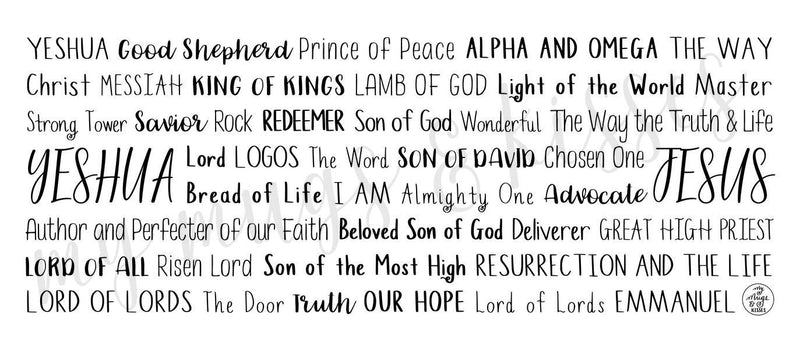 YESHUA Good Shepherd Prince of Peace ALPHA AND OMEGA THE WAY
Christ MESSIAH KING OF KINGS LAMB OF GOD Light of the World Master
Strong Tower Savior Rock REDEEMER Son of God Wonderful The Way the Truth & Life
YESHUA
Lord LOGOS The Word SON OF DAVID Chosen One
Bread of Life I AM Almighty One Advocate
JESUS
Author and Perfecter of our Faith Beloved Son of God Deliverer GREAT HIGH PRIEST
LORD OF ALL Risen Lord Son of the Most High RESURRECTION AND THE LIFE
LORD OF LORDS The Door Truth OUR HOPE Lord of Lords EMMANUEL
my Mugs & KISSES
my mugs & kisses